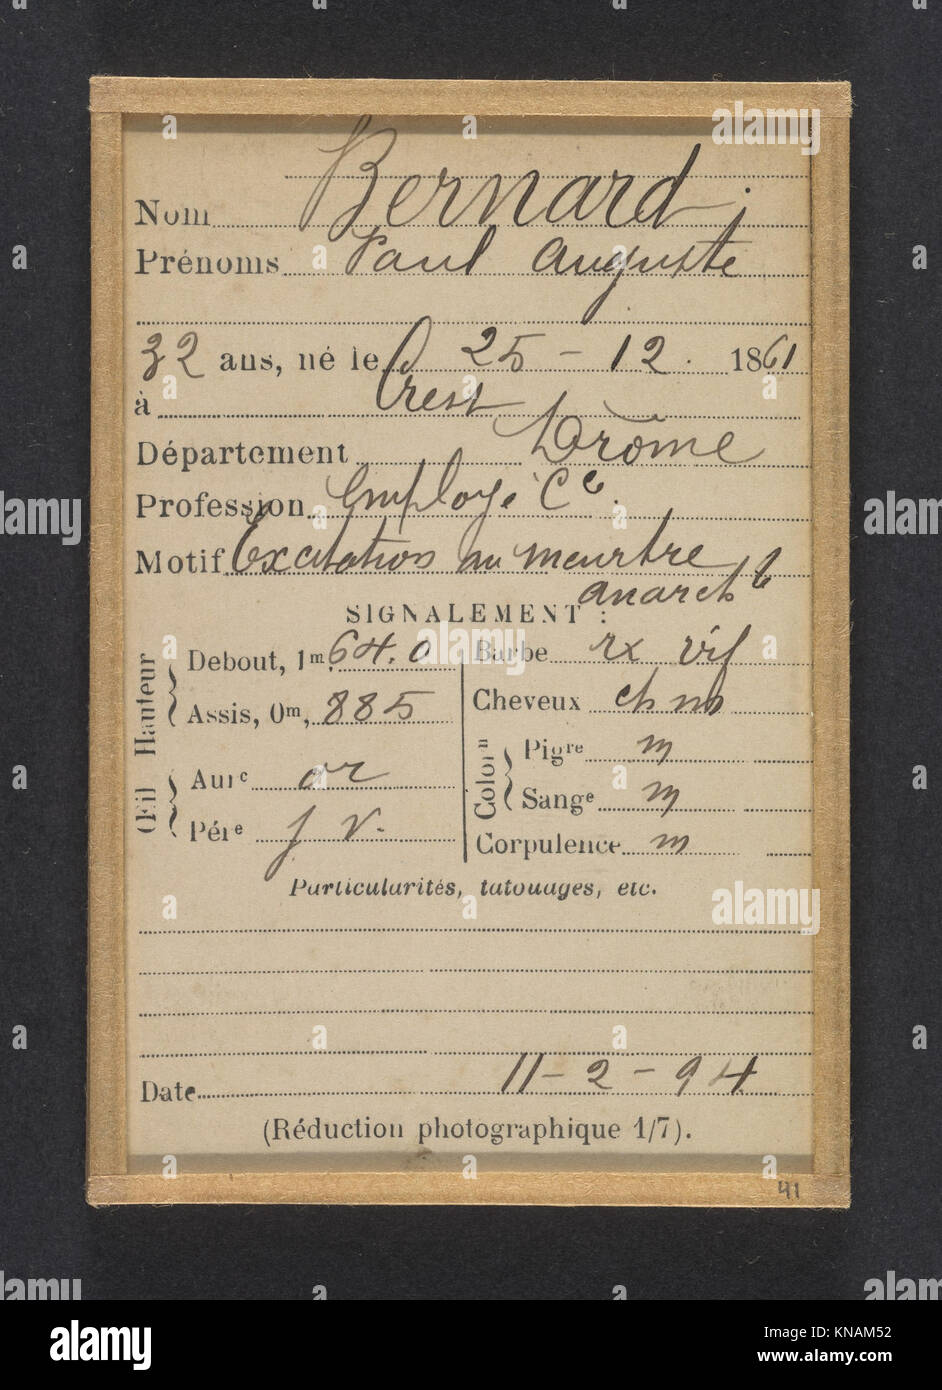 Nom Bernard ;
Prénoms Paul Auguste
32 ans, né le 25 - 12 . 1861
à Crest
Département Drôme
Profession Employé Cce.
Motif Excitation au meurtre
anarch te
SIGNALEMENT :
Hauteur
Debout, 1m, 64.0
Assis, 0m, 885
Œil
Aure or
Pére j v.
Barbe rx vif
Cheveux ch m
Colorn
Pigre m
Sange m
Corpulence m
Particularités, tatouages, etc.
Date 11 - 2 - 94
(Réduction photographique 1/7).
41
alamy
Image ID: KNAM52
www.alamy.com